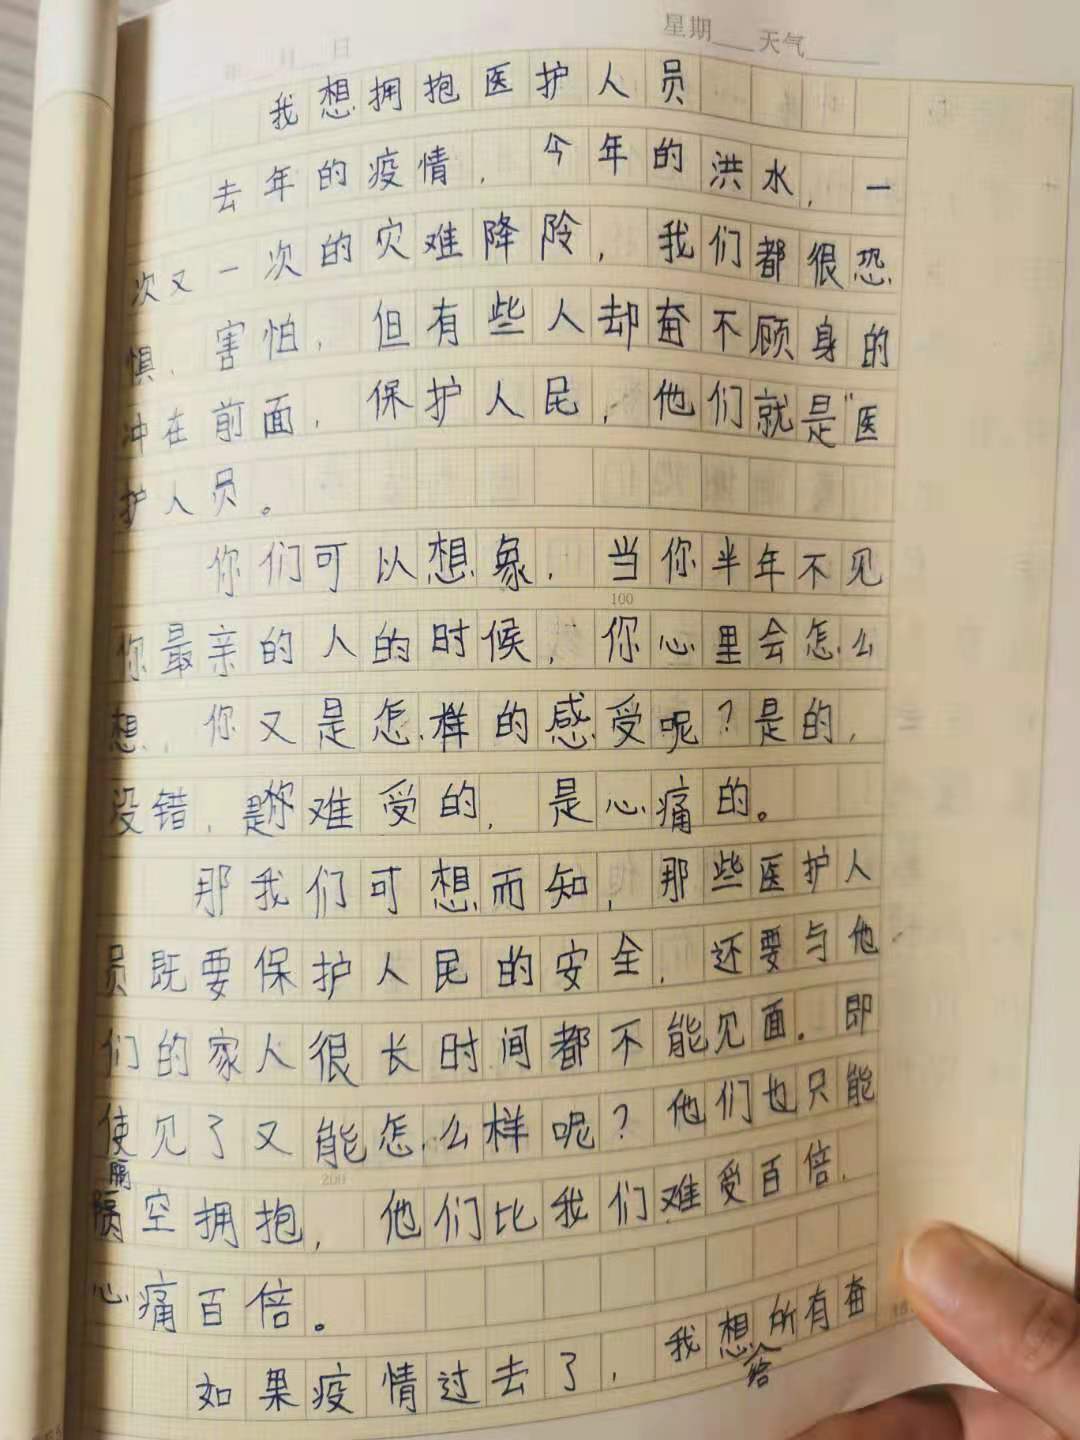 星期 天气
月 日
我想拥抱医护人员
去年的疫情，今年的洪水，一
次又一次的灾难降阾，我们都很恐
惧、害怕，但有些人却奋不顾身的
冲在前面，保护人民，他们就是"医
护人员。
你们可以想象，当你半年不见
100
你最亲的人的时候，你心里会怎么
想，你又是怎样的感受呢？是的，
没错，是你难受的，是心痛的。
那我们可想而知，那些医护人
员既要保护人民的安全，还要与他
们的家人很长时间都不能见面。即
使见了又能怎么样呢？他们也只能
200
隔空拥抱，他们比我们难受百倍，
心痛百倍。
如果疫情过去了，我想给所有奋